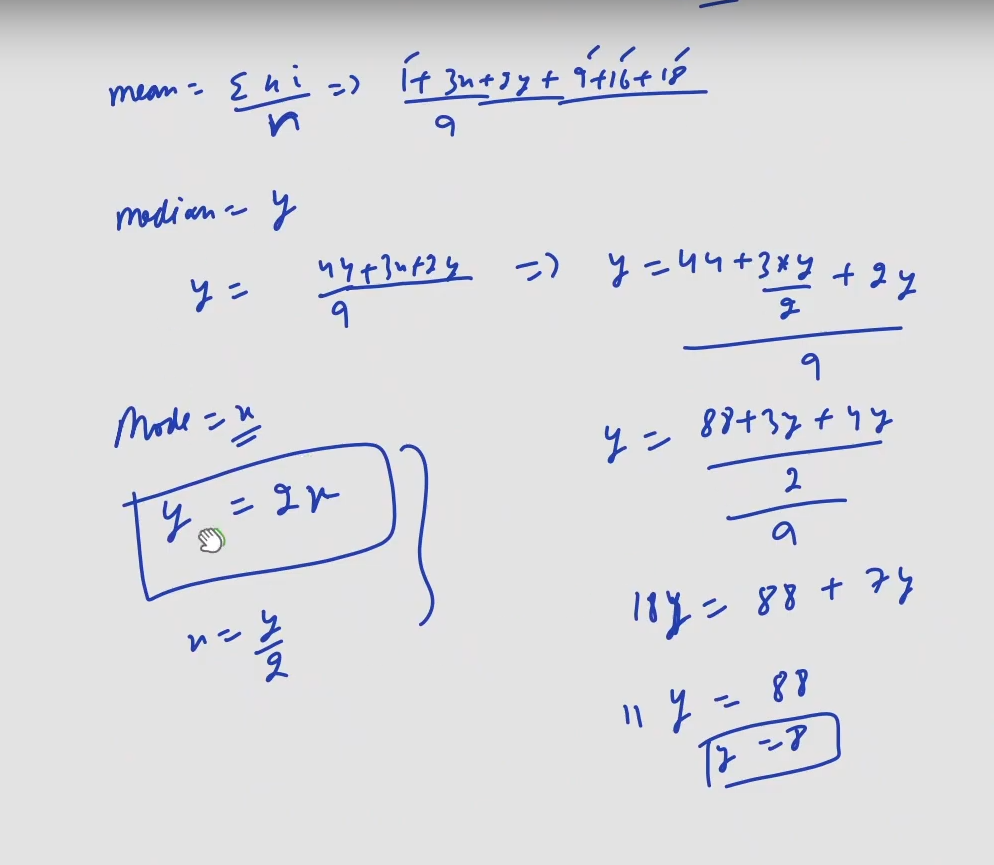 mean = Σxi/n => 1+3x+2y+9+16+18/9
median = y
y = 44+3x+2y/9 => y = 44+3×y/2+2y/9
Mode = x
y = 88+3y+4y/2/9
y = 2x
x = y/2
18y = 88+7y
11y = 88
y = 8